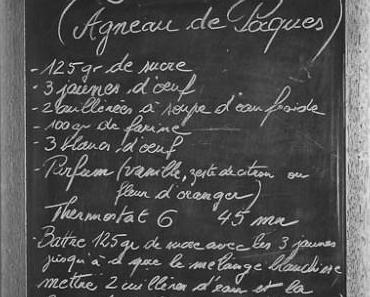 (Agneau de Pâques)
- 125 gr de sucre
- 3 jaunes d'œuf
- 2 cuillerées à soupe d'eau froide
- 100 gr de farine
- 3 blancs d'œuf
- Parfum (vanille, zeste de citron ou
fleur d'oranger)
Thermostat 6 45 mn
- Battre 125 gr de sucre avec les 3 jaunes
jusqu'à ce que le mélange blanchisse
mettre 2 cuillères d'eau et la